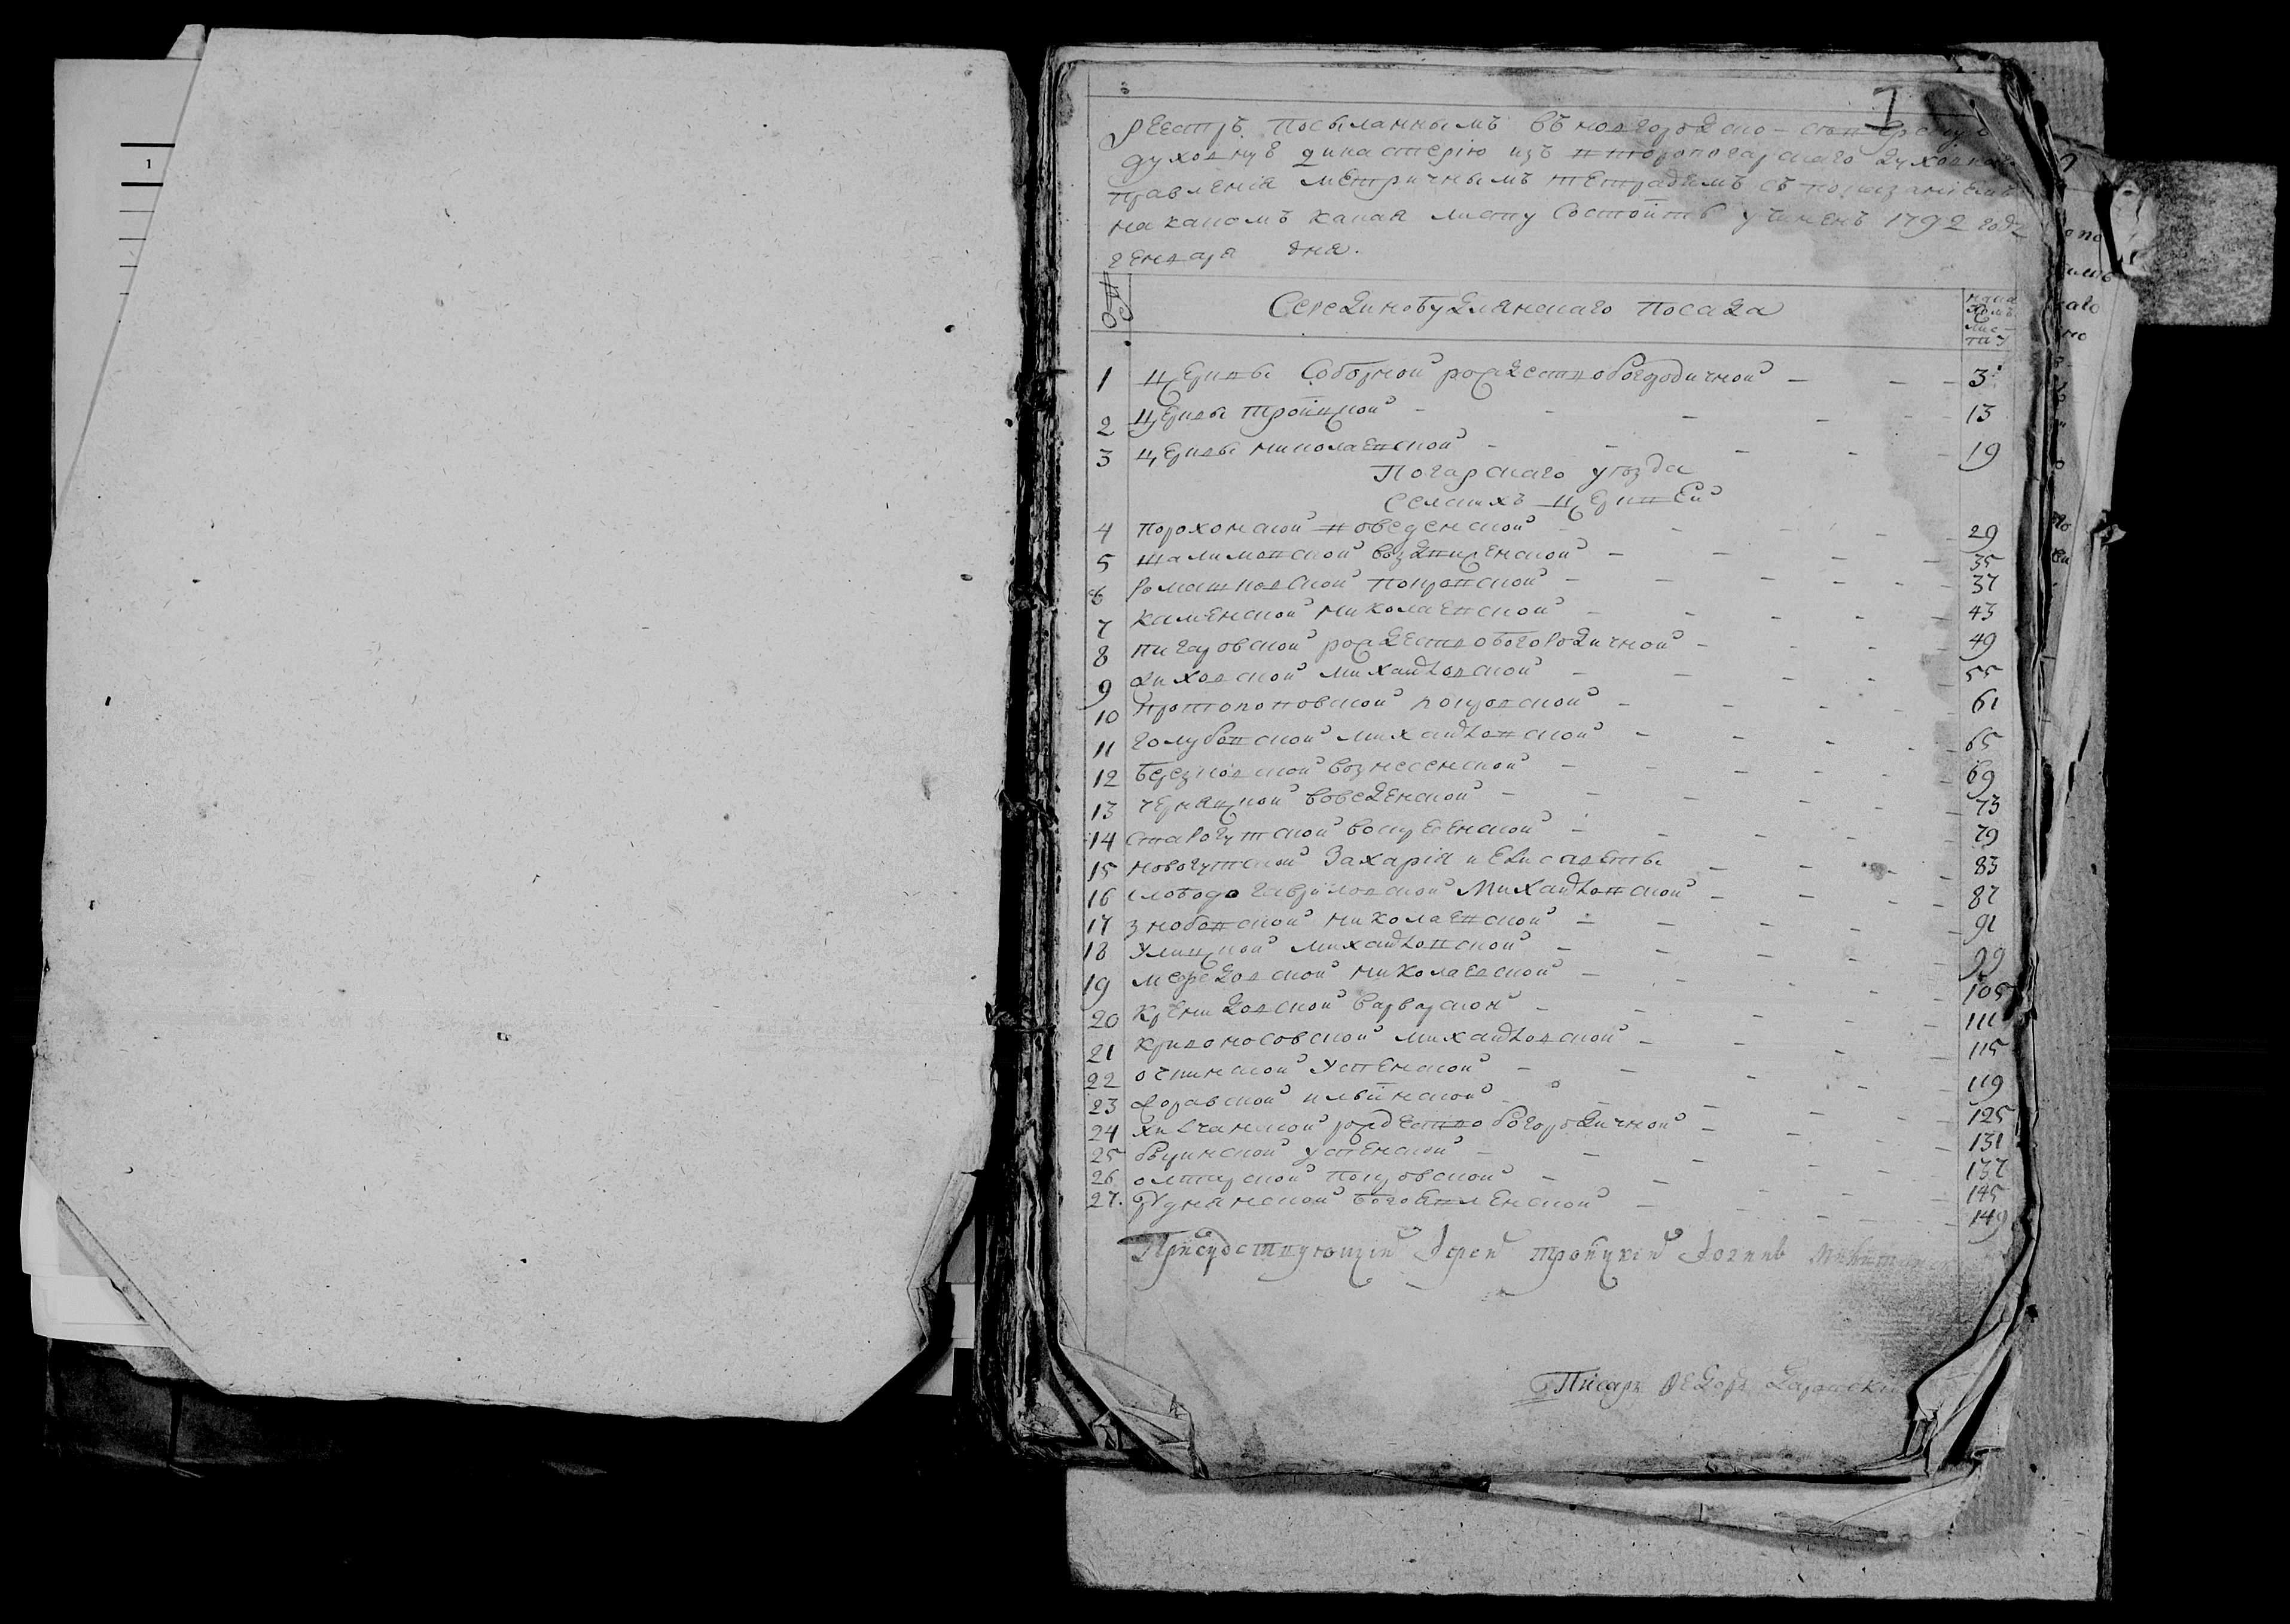 1
I
Реестръ посыланнымъ въ новгородско-северскую
духовную дикастерію изъ второпогарскаго духовнаго
правленія метричнымъ тетрадямъ съ показаніемъ
на какомъ какая листу состоитъ учиненъ 1792 года
генваря дня.
Серединобудянскаго посада
на ка
комъ
лис-
ту
1 Церквы Соборной рождествобогородичной 3
2 Церквы тройцкой 13
3 Церквы николаевской 19
Погарскаго уѣзда
селскихъ церквей
4 порохонской воведенской 29
5 шалимовской воздвиженской 35
6 ромашковской покровской 37
7 каменской николаевской 43
8 пигаровской рождествобогородичной 49
9 жиховской михайловской 55
10 протопоповской покровской 61
11 голубовской михайловской 65
12 березковской вознесенской 69
13 чернацкой воведенской 73
14 старогутской воскресенской 79
15 новогутской Захаріи и Елисаветы 83
16 слободо гавриловской михайловской 87
17 знобовской николаевской 91
18 улицкой михайловской 99
19 мефедовской николаевской 105
20 кренидовской варварской 111
21 кривоносовской михайловской 115
22 очкинской успенской 119
23 жоравской ильинской 125
24 хилчанской рождествобогородичной 131
25 быринской успенской 137
26 олтарской покровской 145
27. Руднянской богоявленской 149
Присудствующій Іерей тройцкій Іоаннъ
Писарь Федоръ